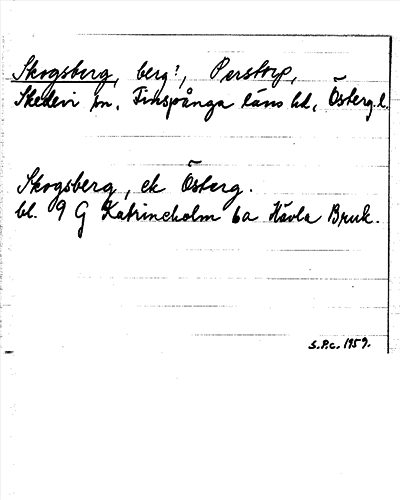 Skogsberg, berg?, Perstorp,
Skedevi sn. Finspånga läns hd, Österg.l.
Skogsberg, ek Österg.
bl. 9 G Katrineholm 6a Hävla Bruk.
S.P.c. 1959.